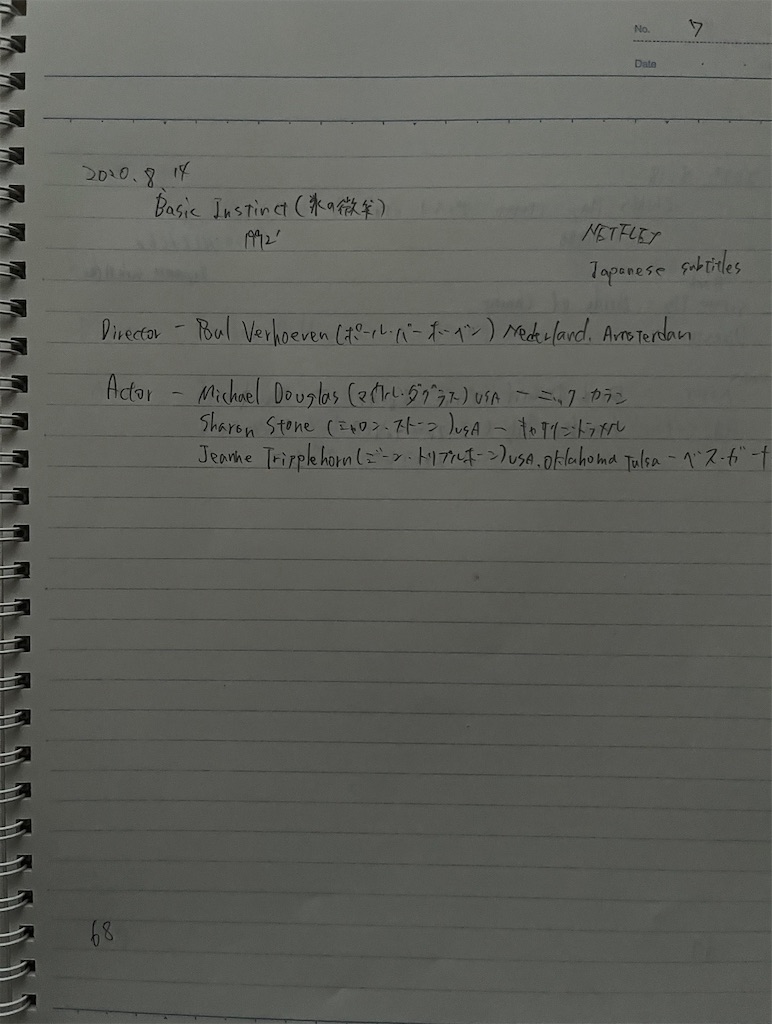 No. 7
Date
2020. 8. 14
Basic Instinct (氷の微笑)
1992'
NETFLEX
Japanese subtitles
Director - Poul Verhoeven (ポール・バーホーベン) Nederland. Amsterdan
Actor - Michael Douglas (マイケル・ダグラス) USA - ニック・カラン
Sharon Stone (シャロン・ストーン) USA - キャサリン・トラメル
Jeanne Tripplehorn (ジーン・トリプルホーン) USA. Oklahoma Tulsa - ベス・ガーナ
68